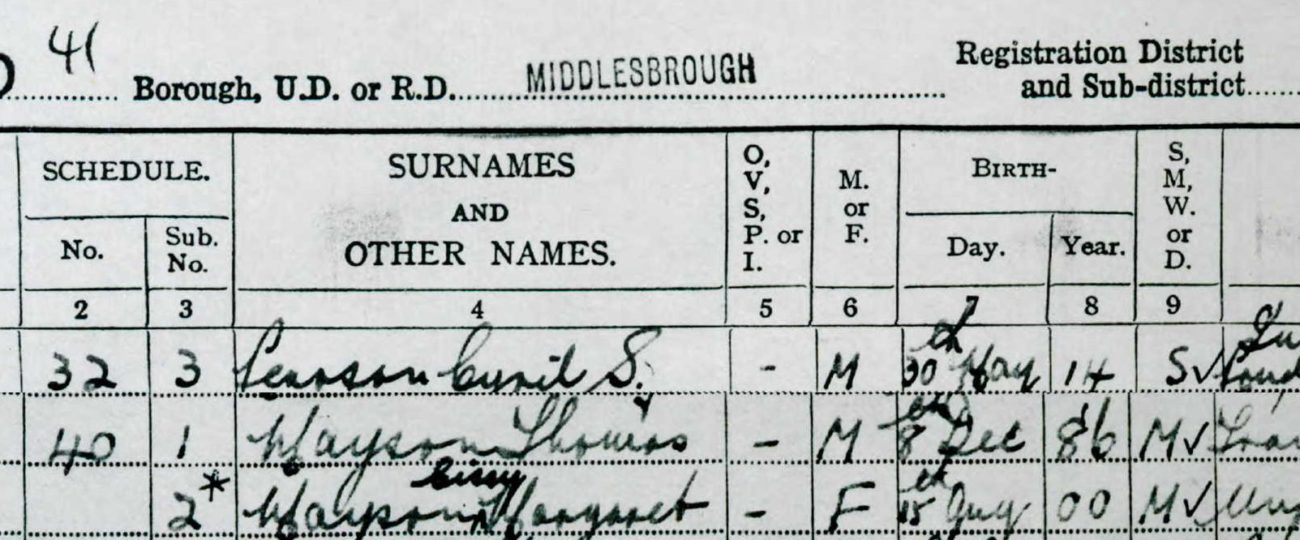 41
Borough, U.D. or R.D. MIDDLESBROUGH
Registration District
and Sub-district
SCHEDULE.
No.
Sub. No.
SURNAMES
AND
OTHER NAMES.
O,
V,
S,
P. or
I.
M.
or
F.
BIRTH-
Day.
Year.
S,
M,
W.
or
D.
2 3 4 5 6 7 8 9
32 3 Pearson Cyril S. - M 30th May 14 S✓
40 1 Mayson Thomas - M 8th Dec 86 M✓
Cissy
2* Mayson Margaret - F 15th Aug 00 M✓